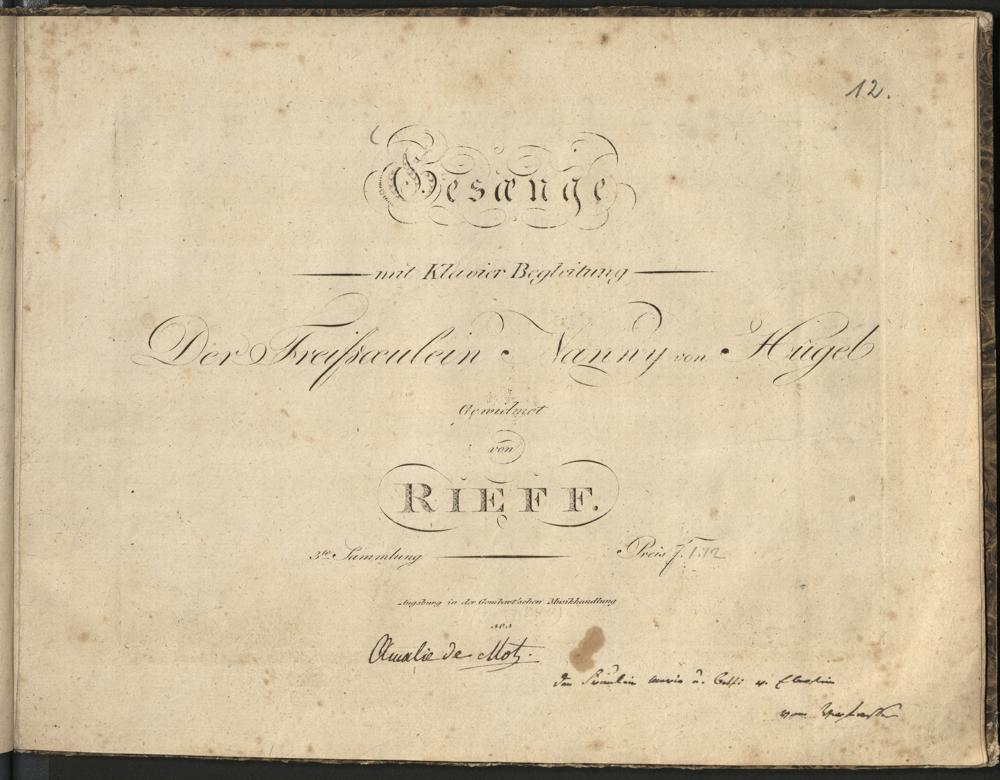 12.
Gesænge
mit Klavier Begleitung
Der Freifræulein Nanny von Hügel
Gewidmet
von
RIEFF.
3te Sammlung Preis f. 1.12
Augsburg in der Gombart'schen Musikhandlung
Amalie de Motz.
Fräulein Marie u.